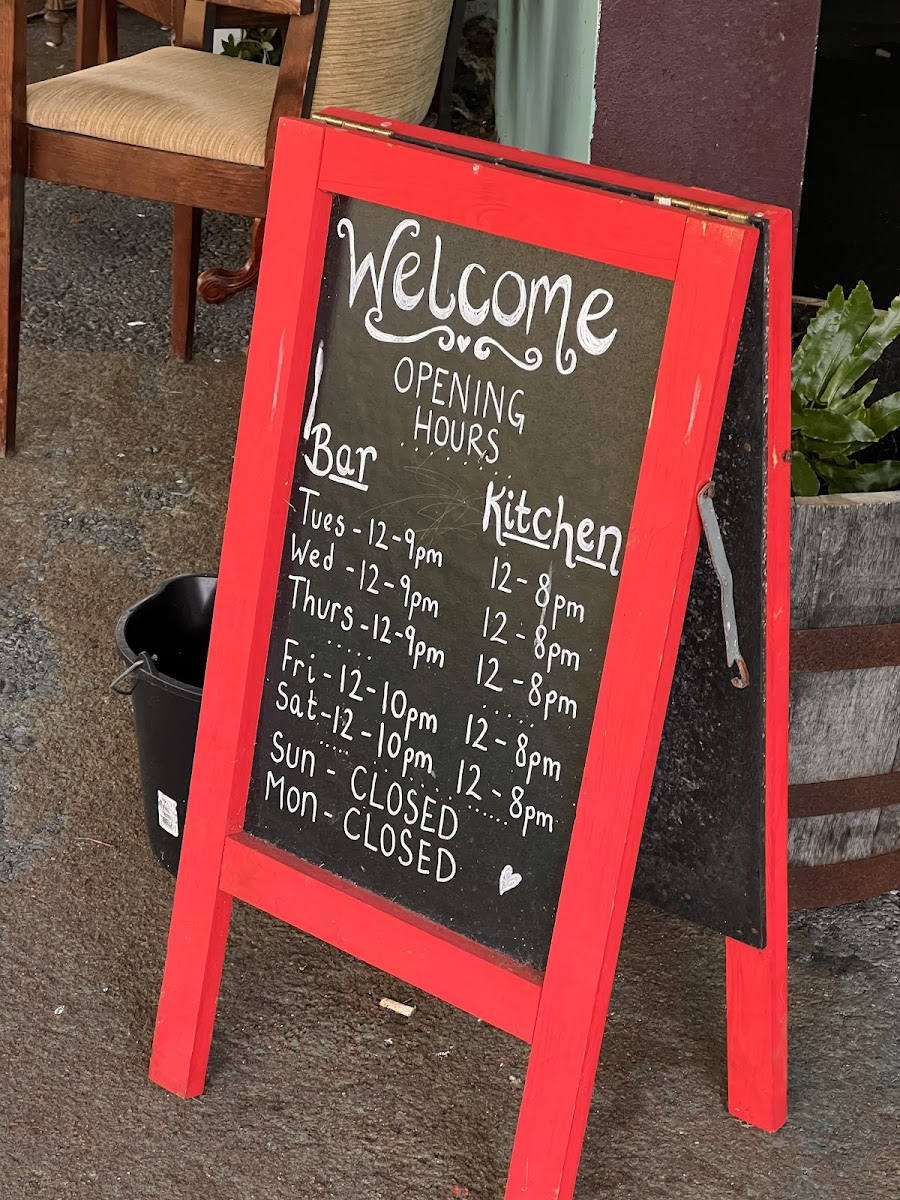 Welcome
OPENING
HOURS
Bar Kitchen
Tues - 12-9pm 12-8pm
Wed - 12-9pm 12-8pm
Thurs - 12-9pm 12-8pm
Fri - 12-10pm 12-8pm
Sat - 12-10pm 12-8pm
Sun - CLOSED
Mon - CLOSED